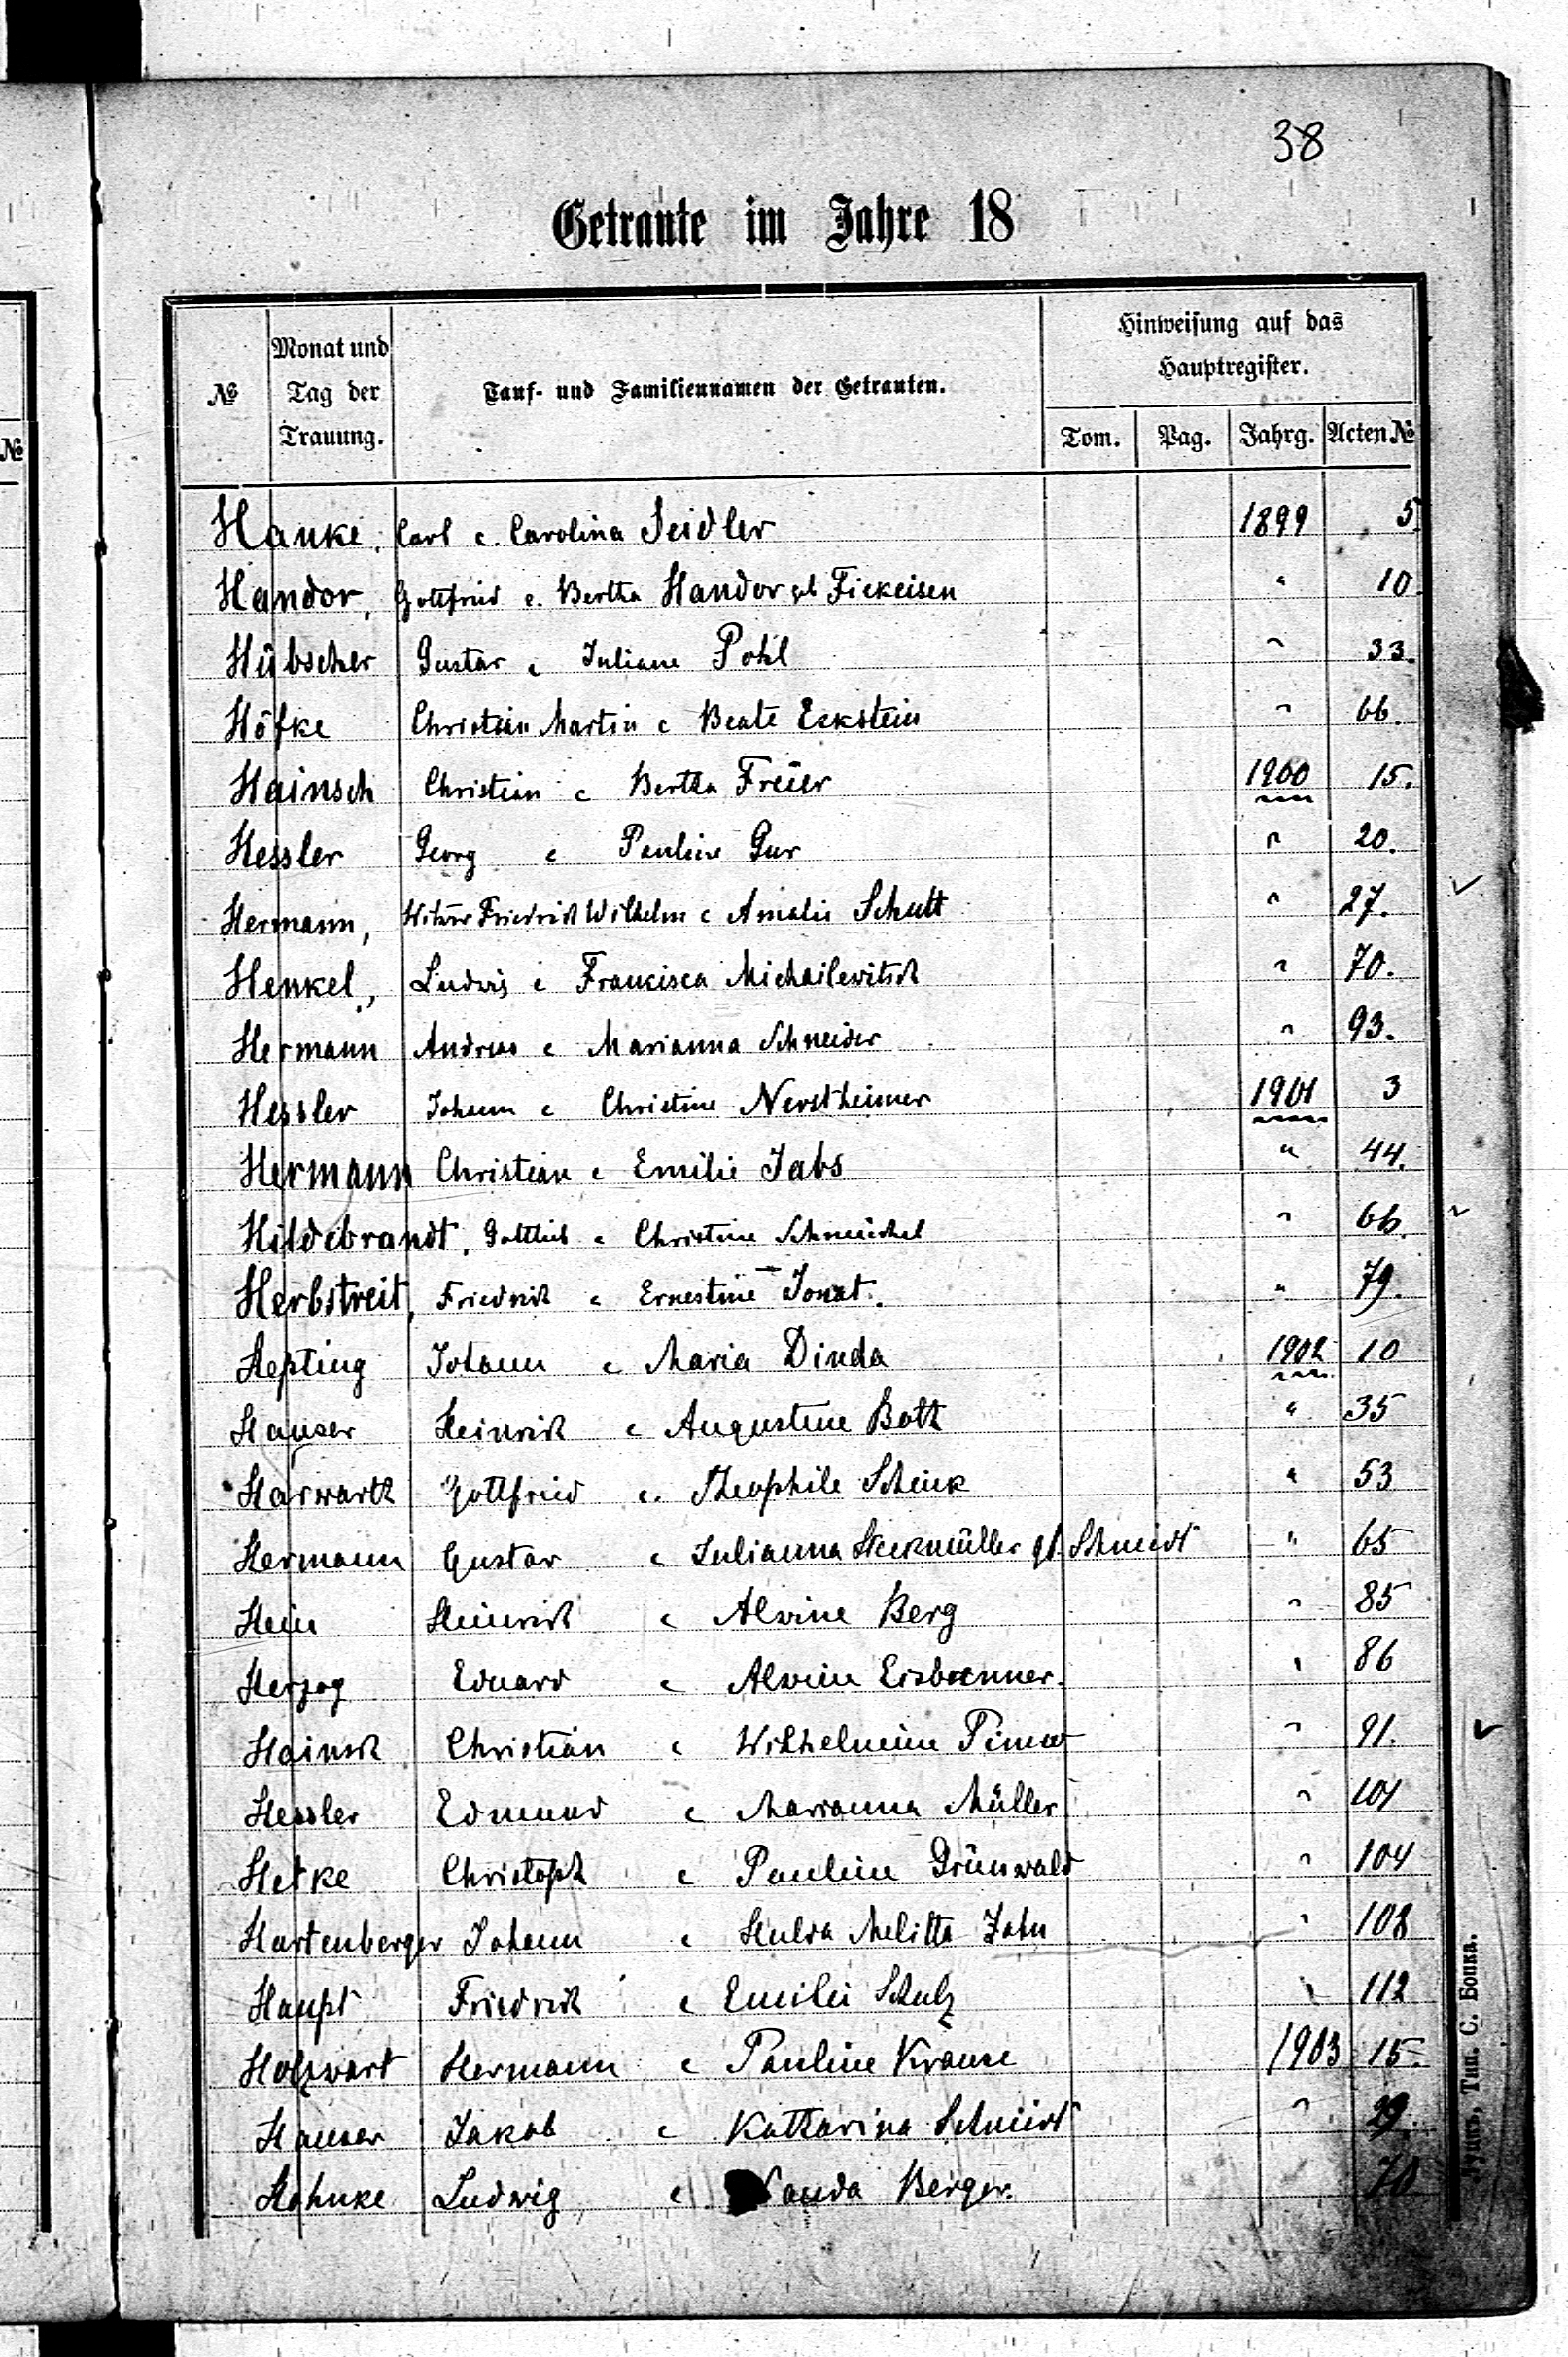 38
Getraute im Jahre 18
№
Monat und Tag der Trauung.
Tauf- und Familiennamen der Getrauten.
Hinweisung auf das Hauptregister.
Tom. Pag. Jahrg. Acten №
№
Hanke, Carl c. Carolina Seidler 1899 5.
Handor, Gottfried c. Bertha Handor gb Fickeisen " 10.
Hübscher Gustav c Juliane Pohl " 33.
Höfke Christian Martin c Beate Eckstein " 66.
Hainsch Christian c Bertha Freier 1900 15.
Hessler Georg c Pauline Gur " 20.
Hermann, Witwer Friedrich Wilhelm c Amalie Schutt " 27.
Henkel, Ludwig c Francisca Michailewitsch " 70.
Hermann Andreas c Marianna Schneider " 93.
Hessler Johann c Christine Nerstheimer 1901 3
Hermann Christian c Emilie Jabs " 44.
Hildebrandt, Gottlieb c Christine " 66.
Herbstreit, Friedrich c Ernestine Jonat. " 79.
Hepting Johann c Maria Dinda 1902 10
Hauser Heinrich c Augustine Both " 35
Harwarth Gottfried c. Theophile Schenk " 53
Hermann Gustav c Julianna gb Schmidt " 65
Hein Heinrich c Alwine Berg " 85
Herzog Eduard c Alwine Eisbrenner. " 86
Hainsch Christian c Wilhelmine Pinnow " 91.
Hessler Edmund c Marianna Müller " 101
Hetke Christoph c Pauline Grünwald " 104
Hartenberger Johann c Hulda Melitta Jahn " 108
Haupt Friedrich c Emilie Schulz " 112
Holzwart Hermann c Pauline Krause 1903 15.
Hauser Jakob c Katharina Schmidt " 29.
Hahnke Ludwig c Wanda Berger. 70
Луцкъ, Тип. С. Бойка.